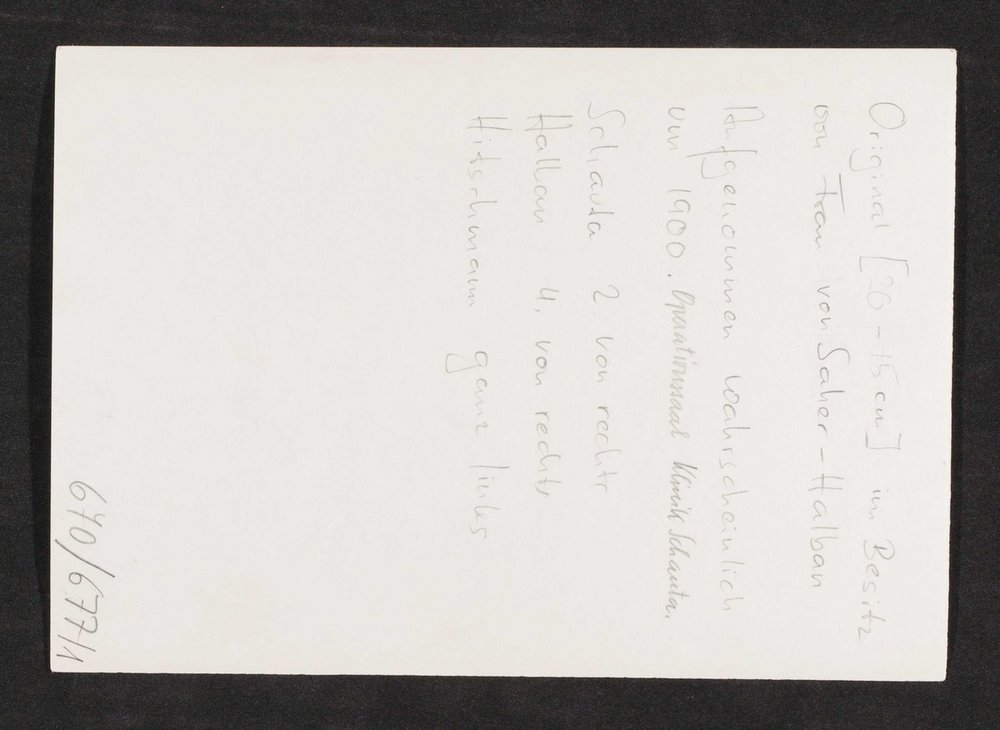 Original [20-15 cm] im Besitz
von Frau von Saher-Halban
Aufgenommen wahrscheinlich
um 1900. Operationssaal Klinik Schauta.
Schauta 2. von rechts
Halban 4. von rechts
Hitschmann ganz links
670/677/1